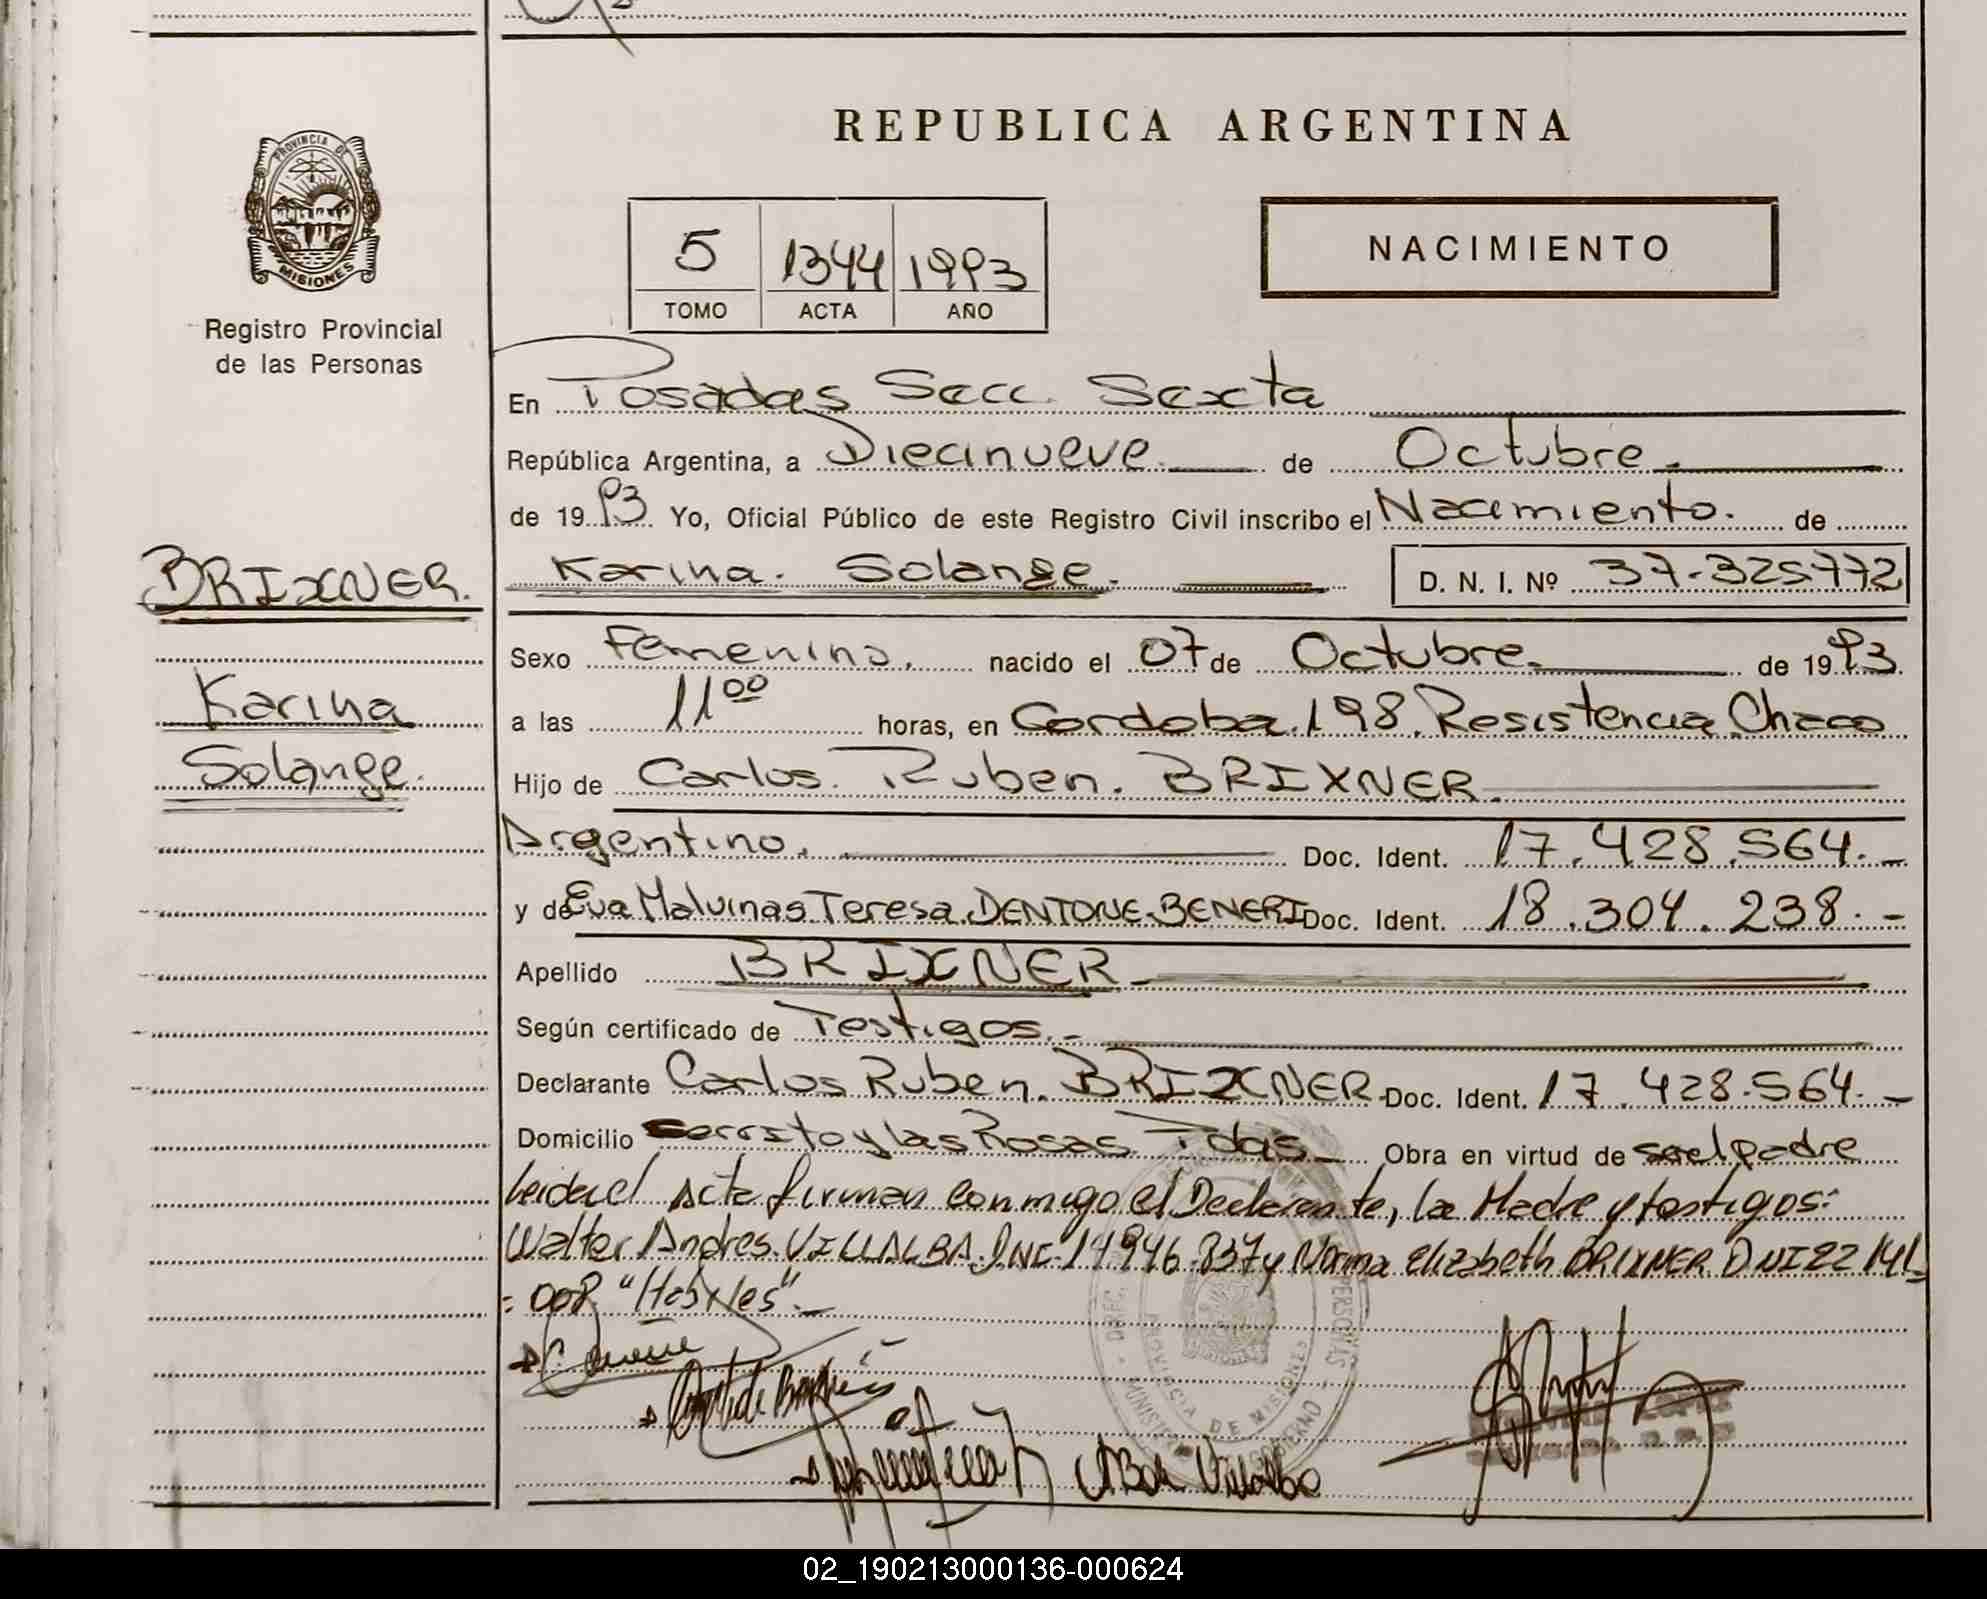 REPUBLICA ARGENTINA
PROVINCIA DE
MISIONES
Registro Provincial
de las Personas
5 1344 1993
TOMO ACTA AÑO
NACIMIENTO
En Posadas Secc. Sexta
República Argentina, a Diecinueve. de Octubre.
de 1993 Yo, Oficial Público de este Registro Civil inscribo el Nacimiento. de
BRIXNER.
Karina
Solange.
Karina. Solange. D. N. I. Nº 37-325772
Sexo Femenino. nacido el 07 de Octubre. de 1993.
a las 11 00 horas, en Cordoba 198. Resistencia Chaco
Hijo de Carlos Ruben. BRIXNER.
Argentino. Doc. Ident. 17.428.564.-
y de Eva Malvinas Teresa DENTONE BENERI Doc. Ident. 18.304.238.-
Apellido BRIXNER
Según certificado de Testigos.-
Declarante Carlos Ruben. BRIXNER Doc. Ident. 17.428.564.-
Domicilio Cerrito y las Rosas Pdas Obra en virtud de ser el padre
leida el Acta firman conmigo el Declarante, la Madre y testigos:
Walter Andres VILLALBA DNI 14946.837 y Norma Elizabeth BRIXNER DNI 22 141-
008 "Habiles".-
PROVINCIA DE MISIONES
Villalba
02_190213000136-000624